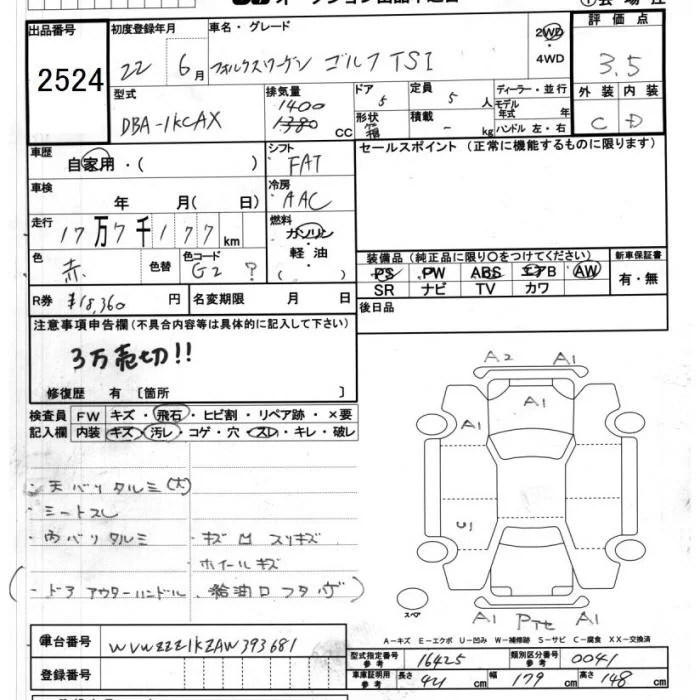 出品番号
2524
初度登録年月
22 6月
車名・グレード
フォルクスワーゲン ゴルフTSI
2WD
・
4WD
評価点
3.5
外装 内装
C D
型式
DBA-1KCAX
排気量
1400
1380 CC
ドア
5
形状
定員
5 人
積載
- kg
ディーラー・並行
モデル年式 年
ハンドル 左・右
車歴
自家用・( )
シフト
FAT
車検
年 月( 日)
冷房
AAC
走行
17万7千177km
燃料
ガソリン
軽油
( )
色
赤
色替
色コード
G2 ?
R券 ¥18,360 円
名変期限 月 日
セールスポイント (正常に機能するものに限ります)
装備品 (純正品に限り○をつけてください)
PS PW ABS エアB AW
SR ナビ TV カワ
新車保証書
有・無
後日品
注意事項申告欄(不具合内容等は具体的に記入して下さい)
3万売切!!
修復歴 有 [箇所 ]
検査員
記入欄
FW キズ・飛石・ヒビ割・リペア跡・×要
内装 キズ・汚レ・コゲ・穴・スレ・キレ・破レ
・天バリタルミ(大)
・ミートスレ
・内バリタルミ
・キズ凹スリキズ
ホイールキズ
(・ドアアウターハンドル、給油口フタ
A2 A1
A1
A1
U1
スペア
A1 PTE A1
A-キズ E-エクボ U-凹み W-補修跡 S-サビ C-腐食 XX-交換済
車台番号
WVWZZZ1KZAW393681
登録番号
型式指定番号
参考
16425
類別区分番号
参考
0041
車庫証明用
参考
長さ 421 cm
幅 179 cm
高さ 148 cm